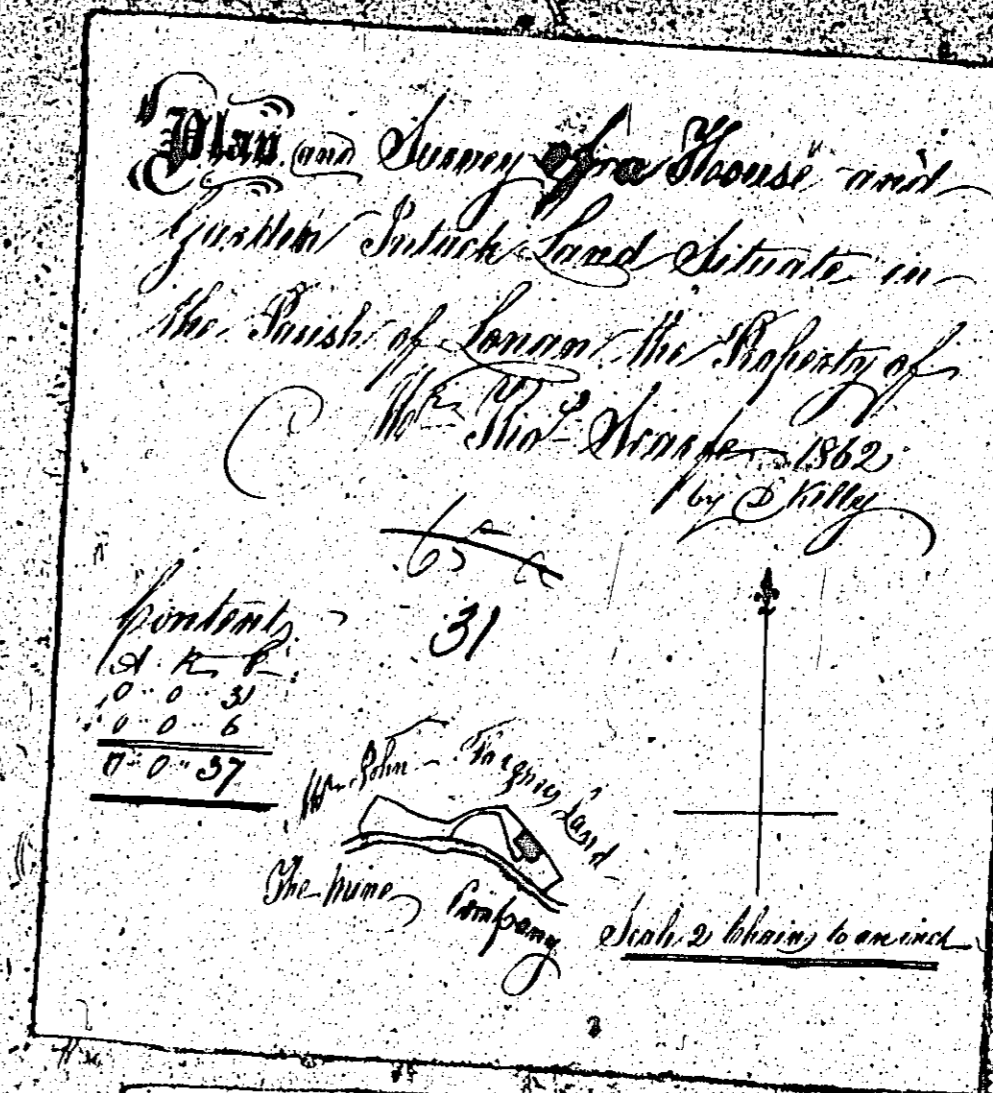 Plan and Survey of a House and
Garden Intack Land Situate in
the Parish of Lonan the Property of
Mr. Thos. Scarfe 1862
by D Killey
31
Contents
A. R. P.
0 .. 0 31
0 0 6
0 .. 0 .. 37
Mr. John Land
The Mine Company
Scale 2 Chains to an inch